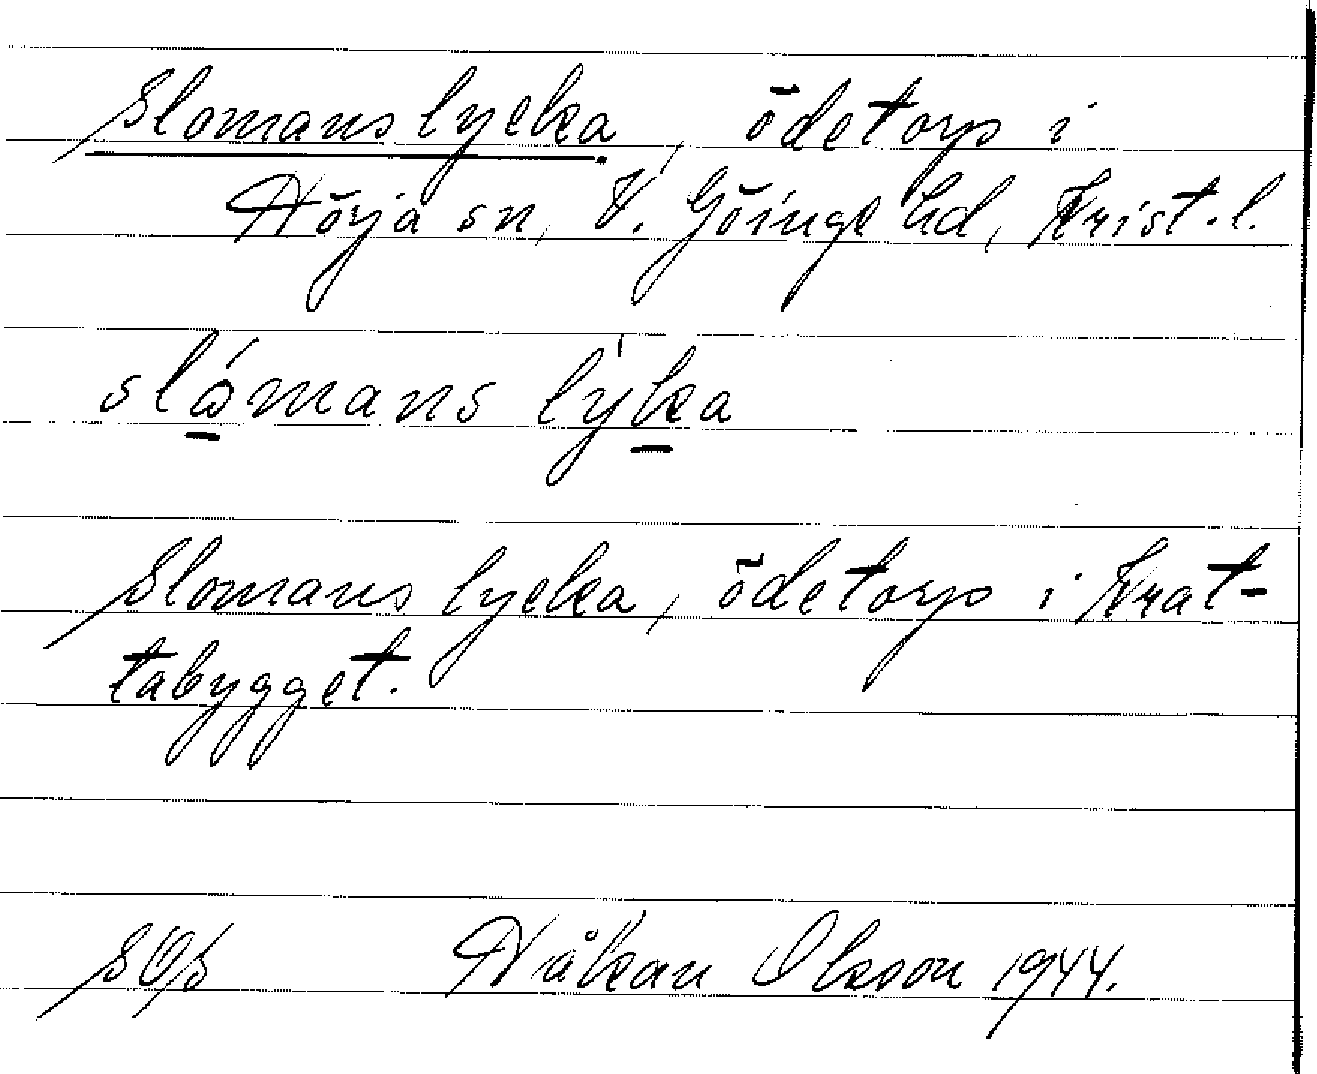 Slomanslycka, ödetorp i
Hörja sn, V. Göinge hd, Krist. l.
slómans lýka
Slomans lycka, ödetorp i Krat-
tabygget.
Håkan Olsson 1944.